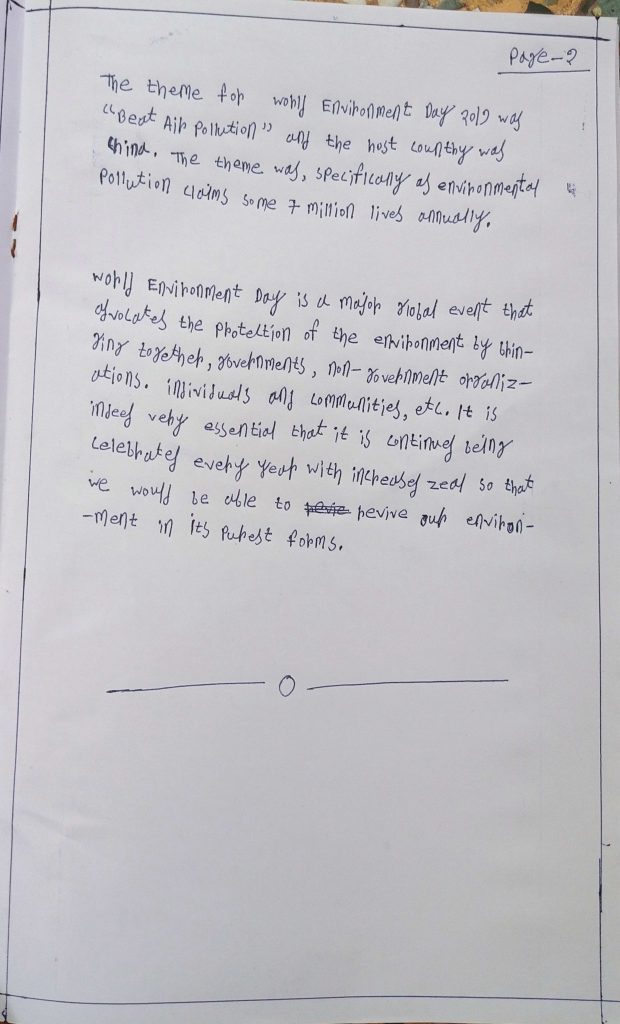 Page-2
The theme for world Environment Day 2019 was
"Beat Air Pollution" and the host country was
china. The theme was, specifically as environmental
Pollution claims some 7 million lives annually.
world Environment Day is a major global event that
advocates the protection of the environment by brin-
ging together, governments, non-government organiz-
ations. individuals and communities, etc. It is
indeed very essential that it is continued being
celebrated every year with increased zeal so that
we would be able to revive our environ-
-ment in its purest forms.